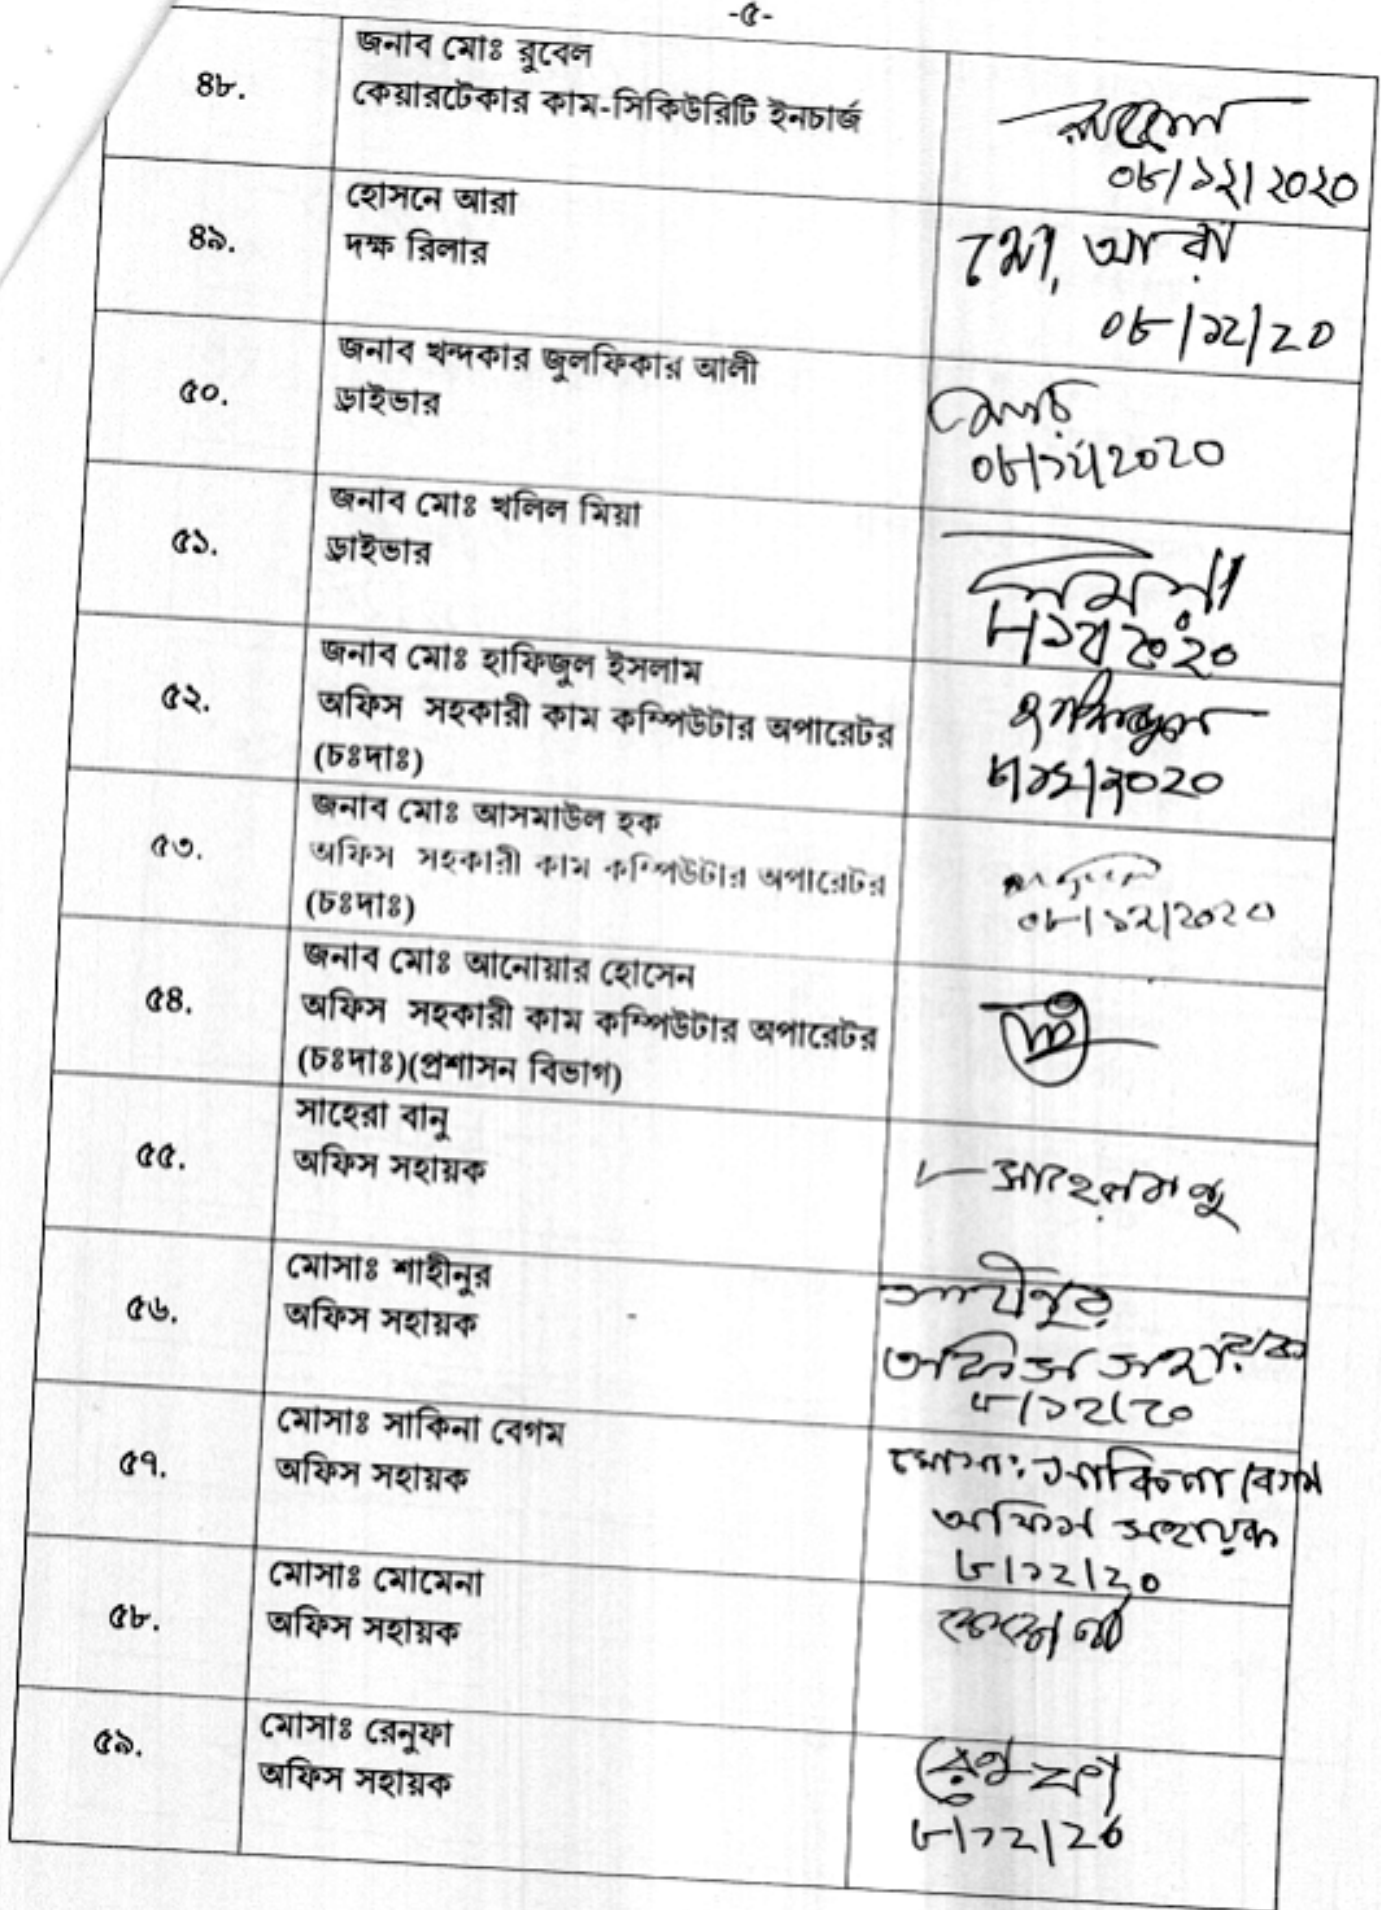 -৫-
৪৮.
জনাব মোঃ রুবেল
কেয়ারটেকার কাম-সিকিউরিটি ইনচার্জ
০৮/১২/২০২০
৪৯.
হোসনে আরা
দক্ষ রিলার
আরা
০৮/১২/২০
৫০.
জনাব খন্দকার জুলফিকার আলী
ড্রাইভার
০৮/১২/২০২০
৫১.
জনাব মোঃ খলিল মিয়া
ড্রাইভার
৮/১২/২০২০
৫২.
জনাব মোঃ হাফিজুল ইসলাম
অফিস সহকারী কাম কম্পিউটার অপারেটর
(চঃদাঃ)
হাফিজুল
৮/১২/২০২০
৫৩.
জনাব মোঃ আসমাউল হক
অফিস সহকারী কাম কম্পিউটার অপারেটর
(চঃদাঃ)
০৮/১২/২০২০
৫৪.
জনাব মোঃ আনোয়ার হোসেন
অফিস সহকারী কাম কম্পিউটার অপারেটর
(চঃদাঃ)(প্রশাসন বিভাগ)
৫৫.
সাহেরা বানু
অফিস সহায়ক
সাহেরা বানু
৫৬.
মোসাঃ শাহীনুর
অফিস সহায়ক
শাহীনুর
অফিস সহায়ক
৮/১২/২০
৫৭.
মোসাঃ সাকিনা বেগম
অফিস সহায়ক
মোসাঃ সাকিনা বেগম
অফিস সহায়ক
৮/১২/২০
৫৮.
মোসাঃ মোমেনা
অফিস সহায়ক
৫৯.
মোসাঃ রেনুফা
অফিস সহায়ক
রেনুফা
৮/১২/২০